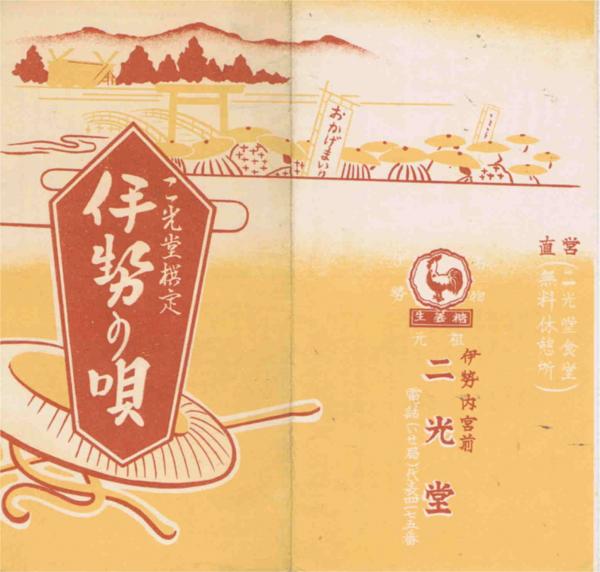 おかげまいり
二光堂撰定
伊勢の唄
直営
(二光堂食堂
無料休憩所)
生姜糖
元祖
伊勢内宮前
二光堂
電話(いせ局)代表四一七五番